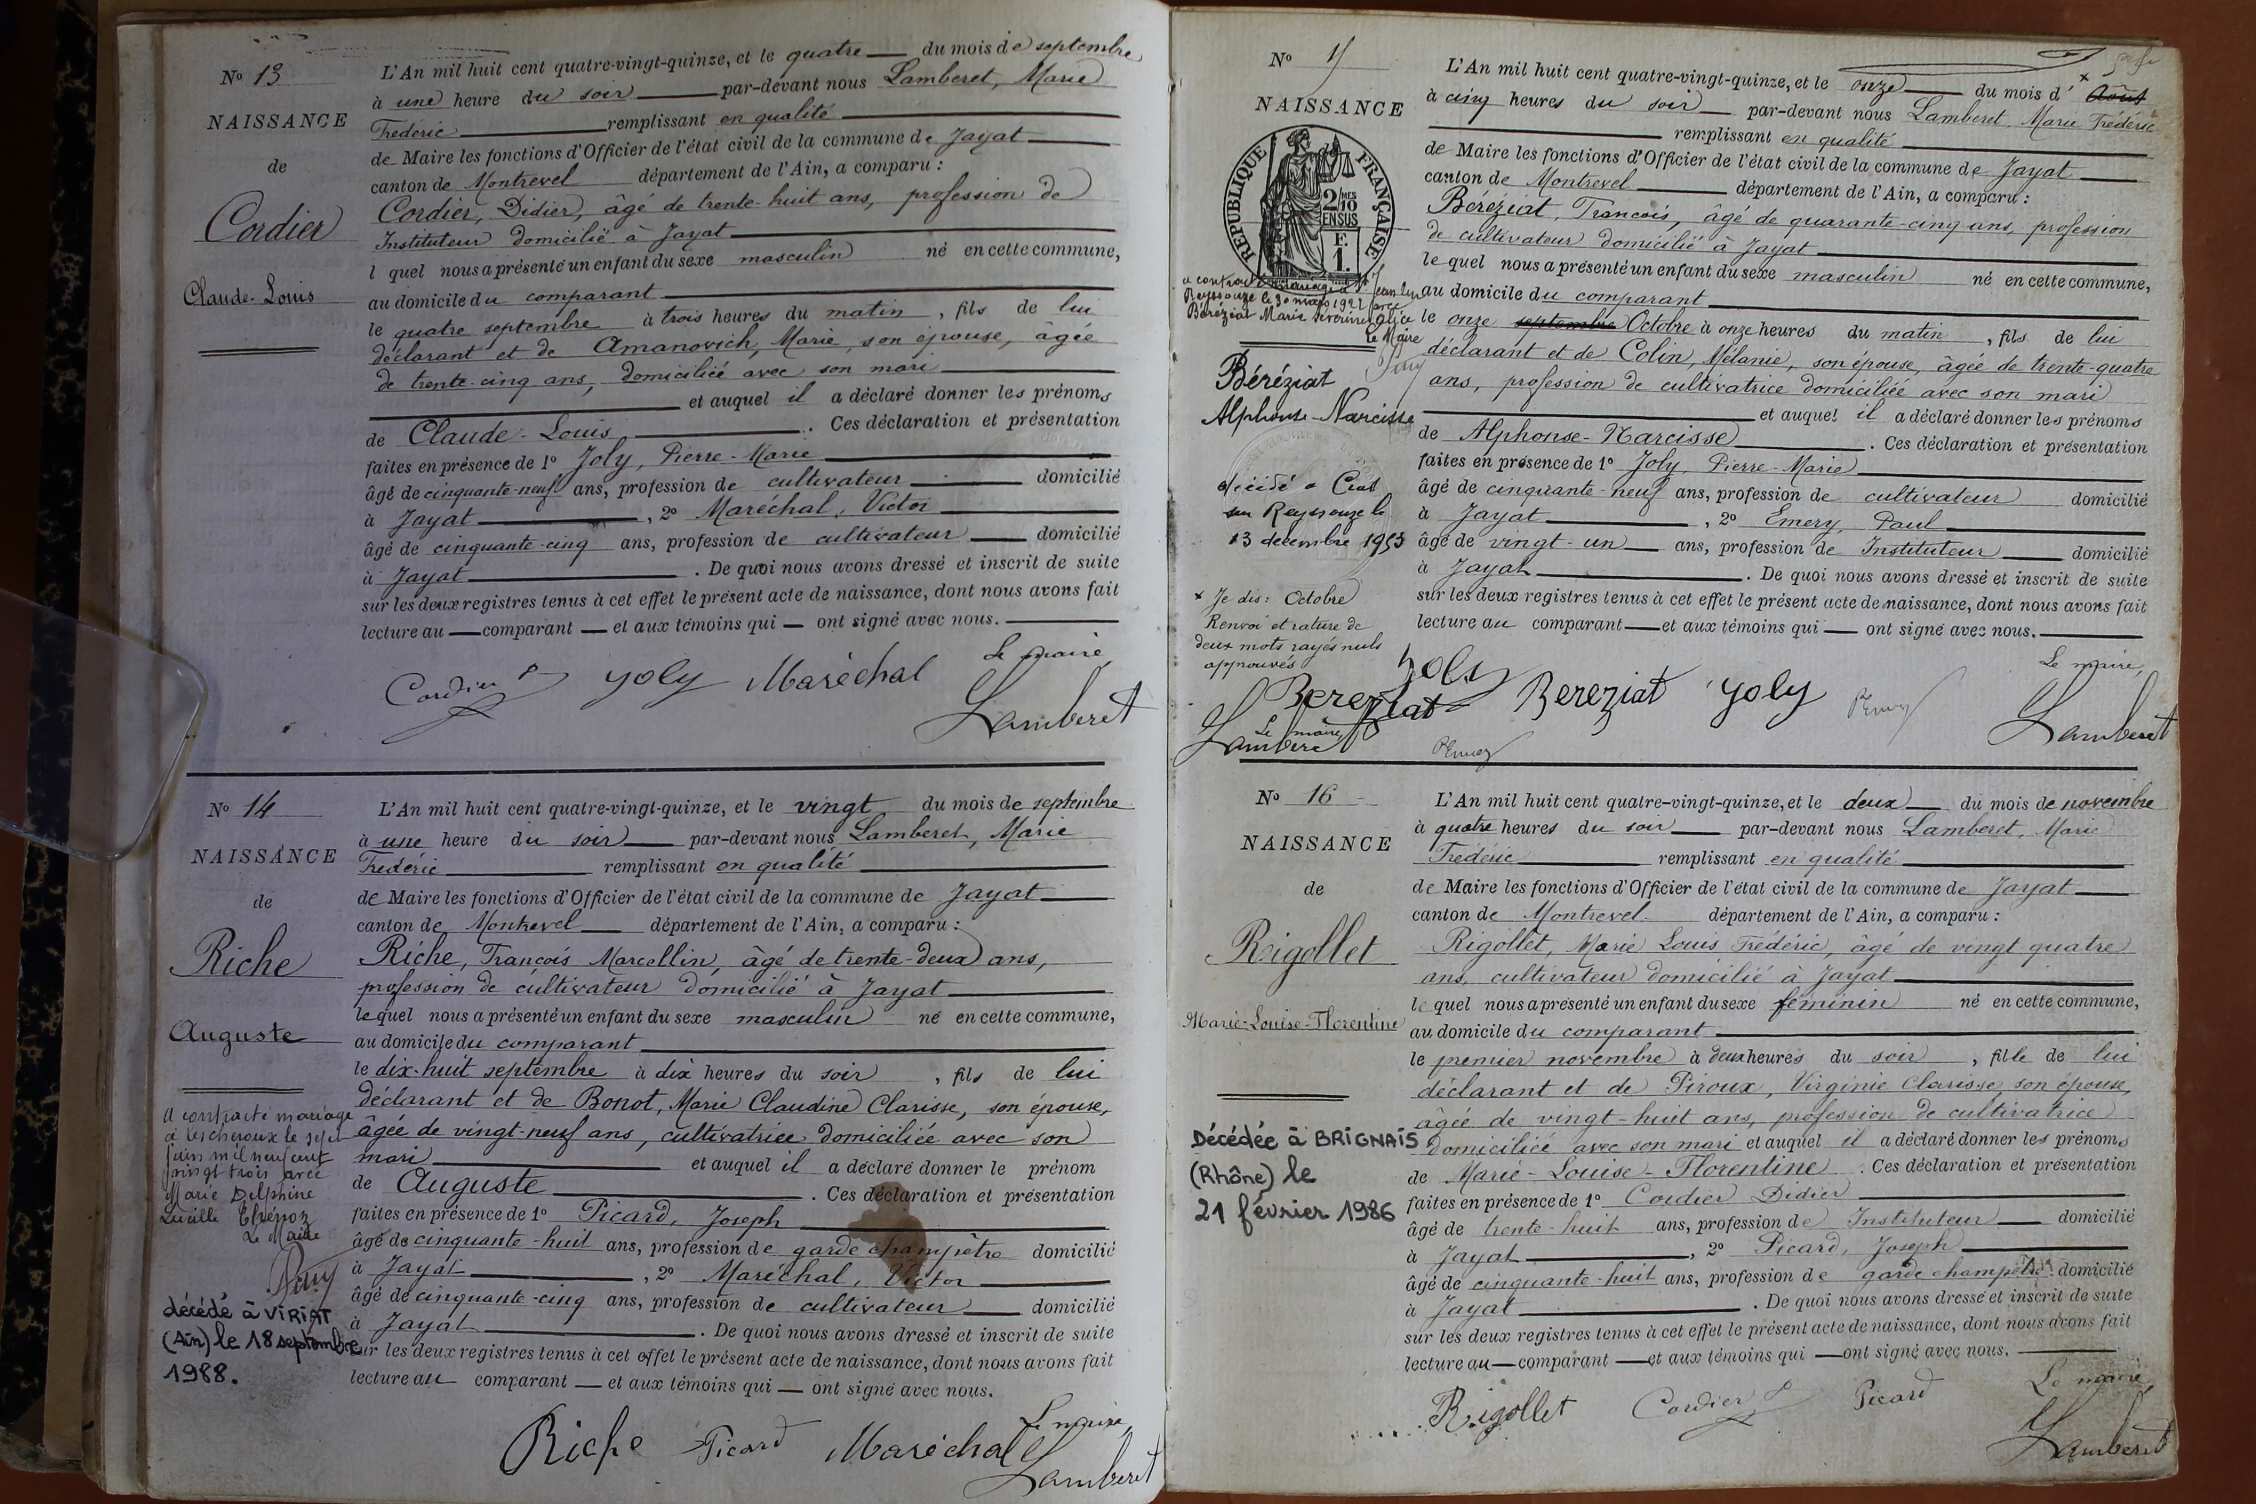 Nº 13
NAISSANCE
de
Cordier
Claude-Louis
L'An mil huit cent quatre-vingt-quinze, et le quatre du mois de septembre
à une heure du soir par-devant nous Lamberet, Marie
Frédéric remplissant en qualité
de Maire les fonctions d'Officier de l'état civil de la commune de Jayat
canton de Montrevel département de l'Ain, a comparu :
Cordier, Didier, âgé de trente-huit ans, profession de
Instituteur domicilié à Jayat
l quel nous a présenté un enfant du sexe masculin né en cette commune,
au domicile du comparant
le quatre septembre à trois heures du matin, fils de lui
déclarant et de Amanovich, Marie, son épouse, âgée
de trente-cinq ans, domiciliée avec son mari
et auquel il a déclaré donner les prénoms
de Claude-Louis. Ces déclaration et présentation
faites en présence de 1º Joly, Pierre-Marie
âgé de cinquante-neuf ans, profession de cultivateur domicilié
à Jayat, 2º Maréchal, Victor
âgé de cinquante-cinq ans, profession de cultivateur domicilié
à Jayat. De quoi nous avons dressé et inscrit de suite
sur les deux registres tenus à cet effet le présent acte de naissance, dont nous avons fait
lecture au comparant et aux témoins qui ont signé avec nous.
Le maire,
Cordier Joly Maréchal Lamberet
Nº 14
NAISSANCE
de
Riche
Auguste
a contracté mariage
à Lescheroux le sept
juin mil neuf cent
vingt trois avec
Marie Delphine
Lucille
Le Maire
décédé à VIRIAT
(Ain) le 18 septembre
1988.
L'An mil huit cent quatre-vingt-quinze, et le vingt du mois de septembre
à une heure du soir par-devant nous Lamberet, Marie
Frédéric remplissant en qualité
de Maire les fonctions d'Officier de l'état civil de la commune de Jayat
canton de Montrevel département de l'Ain, a comparu :
Riche, François Marcellin, âgé de trente-deux ans,
profession de cultivateur domicilié à Jayat
lequel nous a présenté un enfant du sexe masculin né en cette commune,
au domicile du comparant
le dix-huit septembre à dix heures du soir, fils de lui
déclarant et de Bonot, Marie Claudine Clarisse, son épouse,
âgée de vingt-neuf ans, cultivatrice domiciliée avec son
mari et auquel il a déclaré donner le prénom
de Auguste. Ces déclaration et présentation
faites en présence de 1º Picard, Joseph
âgé de cinquante-huit ans, profession de garde champêtre domicilié
à Jayat, 2º Maréchal, Victor
âgé de cinquante-cinq ans, profession de cultivateur domicilié
à Jayat. De quoi nous avons dressé et inscrit de suite
sur les deux registres tenus à cet effet le présent acte de naissance, dont nous avons fait
lecture au comparant et aux témoins qui ont signé avec nous.
Le maire,
Riche Picard Maréchal Lamberet
Nº 15
NAISSANCE
RÉPUBLIQUE FRANÇAISE
2/10 MES
EN SUS
F.
1.
a contracté mariage à St Jean sur
Reyssouze le 30 mars 1922 avec
Béréziat Marie Séverine Alice
Le Maire
Béréziat
Alphonse-Narcisse
décédé à Cras
sur Reyssouze le
13 décembre 1953
x Je dis : Octobre
Renvoi et rature de
deux mots rayés nuls
approuvés
Joly
Bereziat
Le maire,
Lamberet
PEmery
L'An mil huit cent quatre-vingt-quinze, et le onze du mois d' x Août
à cinq heures du soir par-devant nous Lamberet, Marie Frédéric
remplissant en qualité
de Maire les fonctions d'Officier de l'état civil de la commune de Jayat
canton de Montrevel département de l'Ain, a comparu :
Béréziat, François, âgé de quarante-cinq ans, profession
de cultivateur domicilié à Jayat
lequel nous a présenté un enfant du sexe masculin né en cette commune,
au domicile du comparant
le onze septembre Octobre à onze heures du matin, fils de lui
déclarant et de Colin, Mélanie, son épouse, âgée de trente-quatre
ans, profession de cultivatrice domiciliée avec son mari
et auquel il a déclaré donner les prénoms
de Alphonse-Narcisse. Ces déclaration et présentation
faites en présence de 1º Joly, Pierre-Marie
âgé de cinquante-neuf ans, profession de cultivateur domicilié
à Jayat, 2º Emery, Paul
âgé de vingt-un ans, profession de Instituteur domicilié
à Jayat. De quoi nous avons dressé et inscrit de suite
sur les deux registres tenus à cet effet le présent acte de naissance, dont nous avons fait
lecture au comparant et aux témoins qui ont signé avec nous.
Le maire,
Bereziat Joly PEmery Lamberet
Nº 16
NAISSANCE
de
Rigollet
Marie-Louise-Florentine
Décédée à BRIGNAIS
(Rhône) le
21 février 1986
L'An mil huit cent quatre-vingt-quinze, et le deux du mois de novembre
à quatre heures du soir par-devant nous Lamberet, Marie
Frédéric remplissant en qualité
de Maire les fonctions d'Officier de l'état civil de la commune de Jayat
canton de Montrevel département de l'Ain, a comparu :
Rigollet, Marie Louis Frédéric, âgé de vingt quatre
ans, cultivateur domicilié à Jayat
lequel nous a présenté un enfant du sexe féminin né en cette commune,
au domicile du comparant
le premier novembre à deux heures du soir, fille de lui
déclarant et de Piroux, Virginie Clarisse, son épouse,
âgée de vingt-huit ans, profession de cultivatrice
domiciliée avec son mari et auquel il a déclaré donner les prénoms
de Marie-Louise-Florentine. Ces déclaration et présentation
faites en présence de 1º Cordier Didier
âgé de trente-huit ans, profession de Instituteur domicilié
à Jayat, 2º Picard, Joseph
âgé de cinquante-huit ans, profession de garde champêtre domicilié
à Jayat. De quoi nous avons dressé et inscrit de suite
sur les deux registres tenus à cet effet le présent acte de naissance, dont nous avons fait
lecture au comparant et aux témoins qui ont signé avec nous.
Le maire,
Rigollet Cordier Picard Lamberet